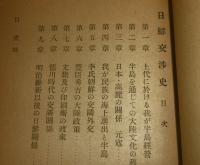 日鮮交渉史 目次
第一章 上代に於ける我が半島經營
第二章 半島を通じての大陸文化の
第三章 日本・高麗の關係 元寇
第四章 我が民族の海上進出と半島
第五章 李氏朝鮮の交隣外交
第六章 豐臣秀吉の大陸政策
第七章 文祿及び慶長役の
第八章 徳川時代の交隣關係
第九章 明治維新以後の日鮮關係
目次